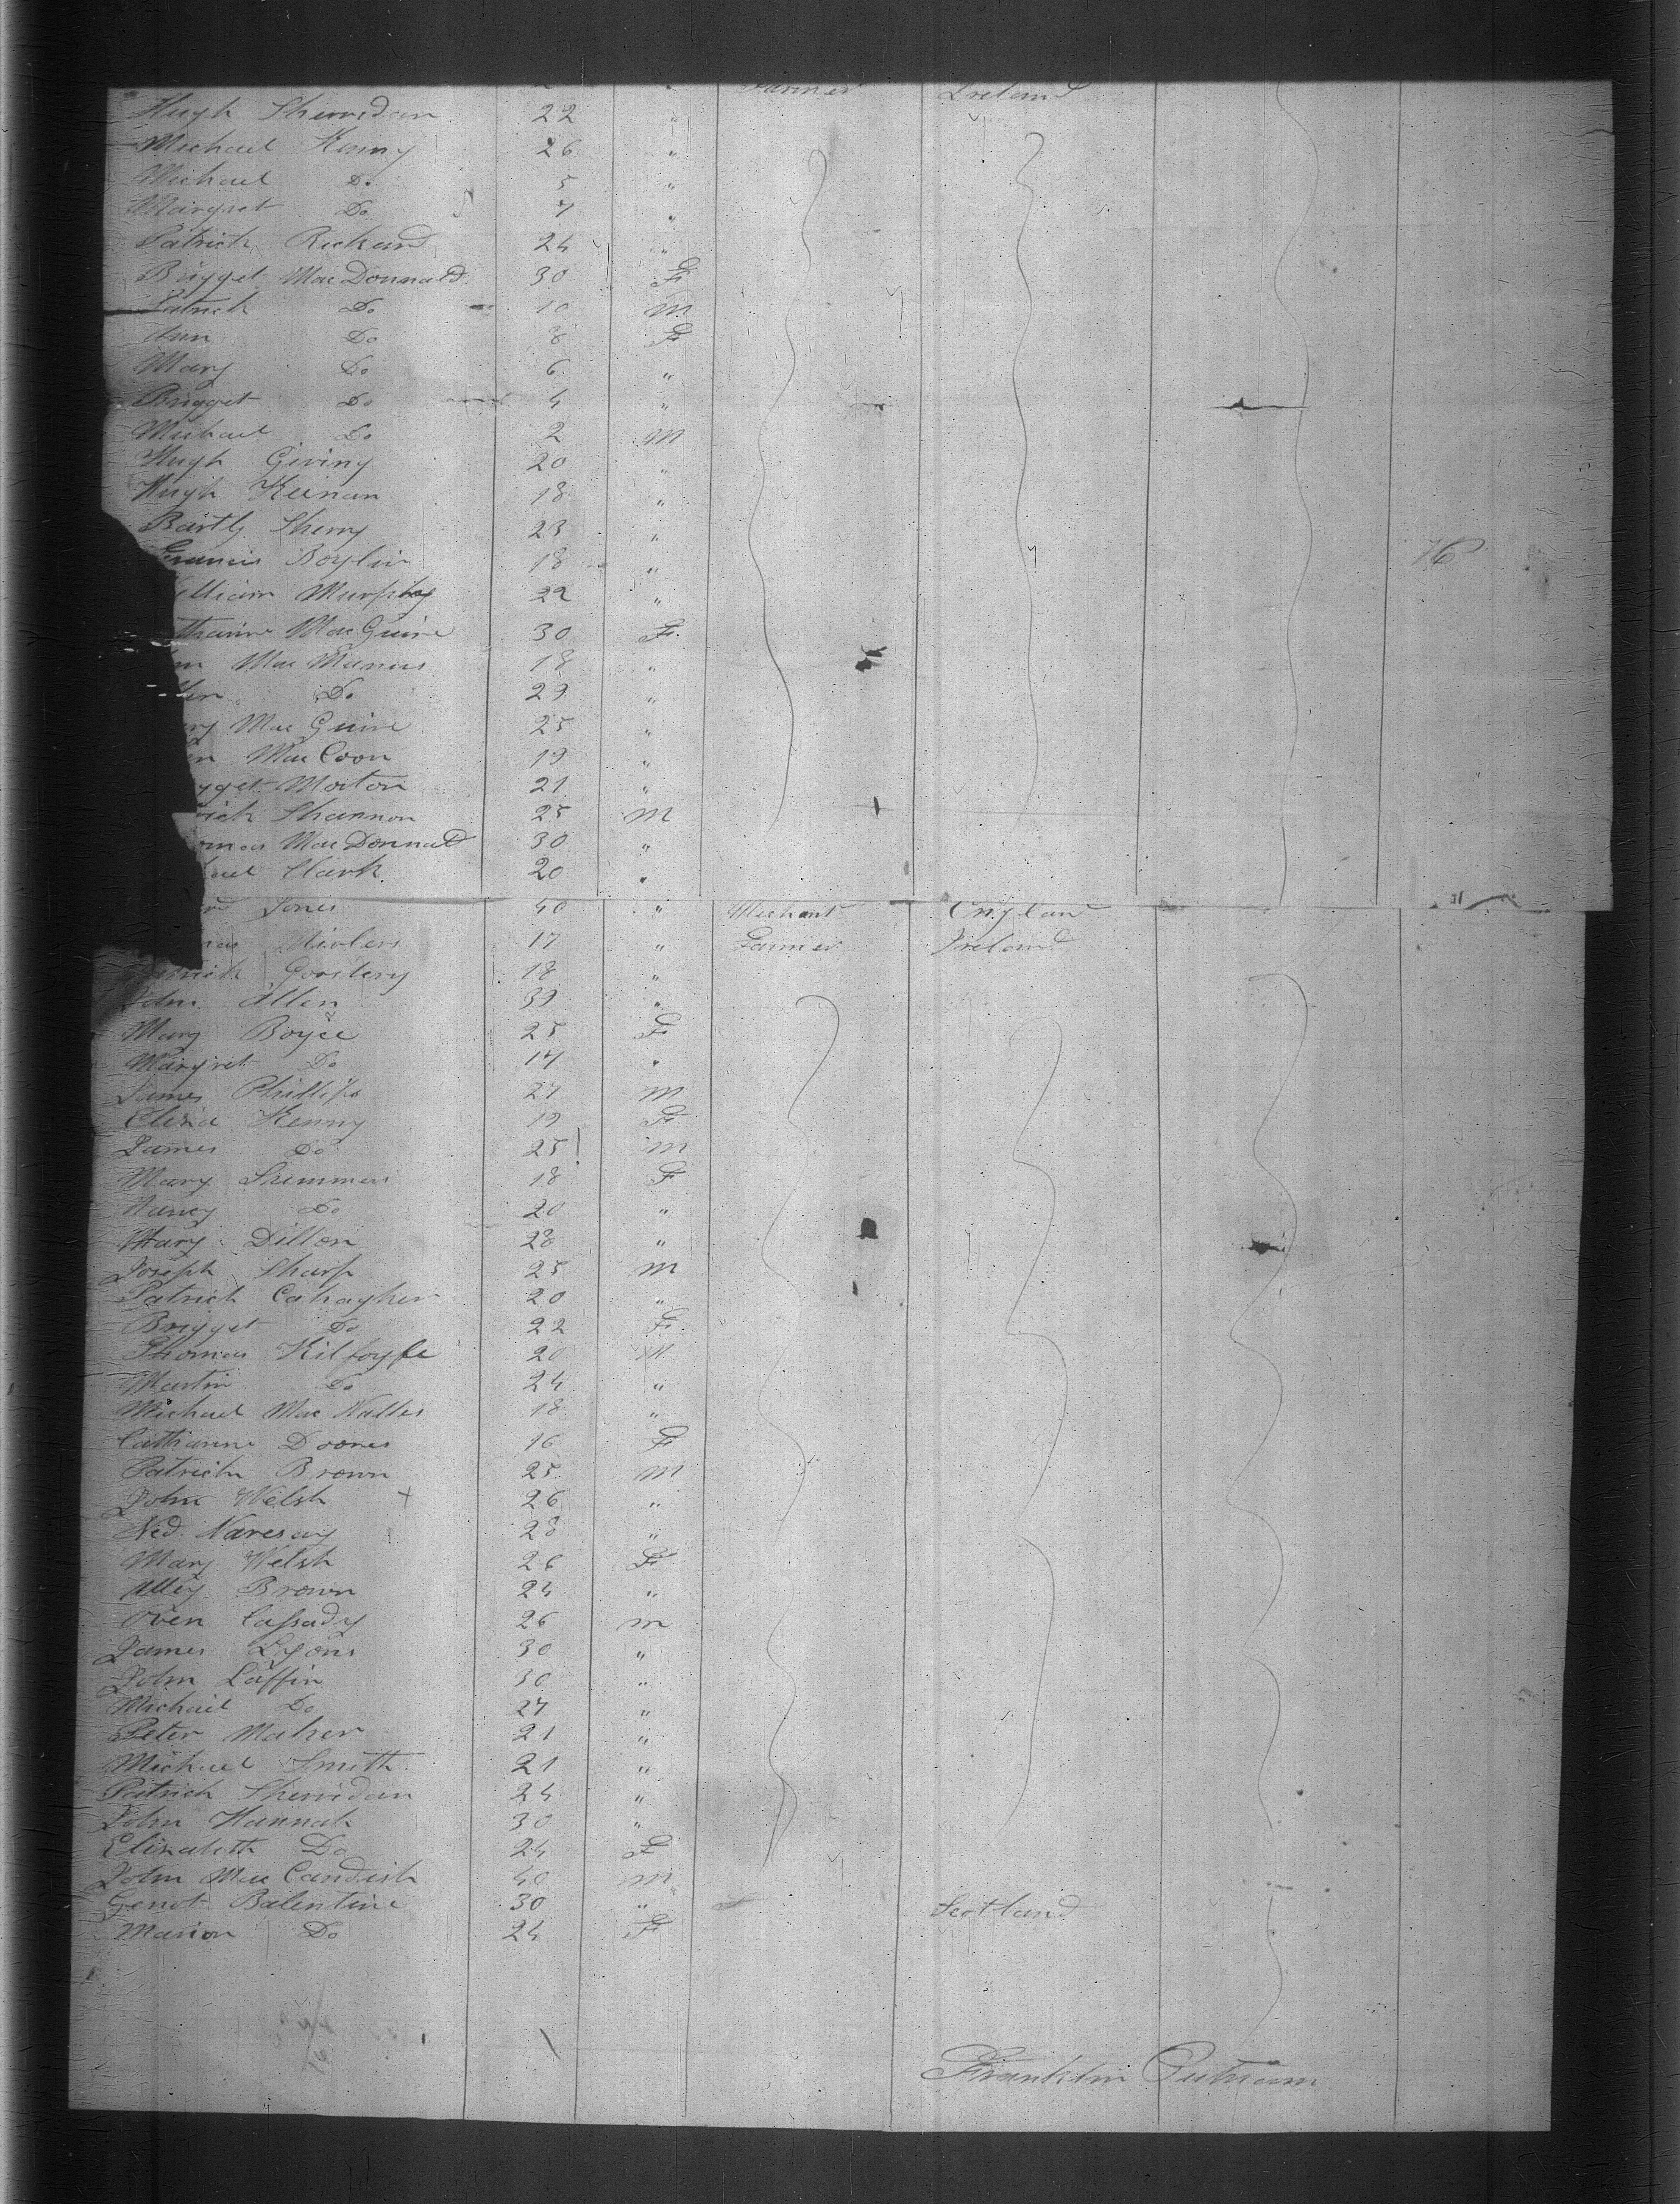 Farmer Ireland
Hugh Sherridan 22 "
Michael Kenny 26 "
Michael Do 5 "
Margret Do 7 "
Patrick Rickard 24 "
Brigget MacDonnald 30 F
Patrick Do 10 M
Ann Do 8 F
Mary Do 6 "
Brigget Do 4 "
Michael Do 2 M
Hugh Giviny 20 "
Hugh Keinan 18 "
Bartly Sherry 23 "
Francis Boylin 18 "
illiam Murphy 22 "
tharine MacGuire 30 F
nn MacManus 18 "
llen Do 29 "
ary MacGuire 25 "
en MacCoon 19 "
ygget Morton 21 "
rick Shannon 25 M
omas MacDonnald 30 "
ael Clark 20 "
Jones 40 " Mechant England
mas 17 " Farmer Ireland
Patrick 18 "
John Allen 39 "
Mary Boyce 25 F
Margret Do 17 "
James Phillips 27 M
Eliza Kenny 19 F
James Do 25 M
Mary Shemmers 18 F
Nancy Do 20 "
Mary Dillon 28 "
Joseph Sharp 25 M
Patrick Cahagher 20 "
Brigget Do 22 F
Thomas Kilfoyle 20 M
Martin Do 24 "
Michael MacNalles 18 "
Catharine Doones 16 F
Patrick Brown 25 M
John Welsh + 26 "
Ned Naresay 28 "
Mary Welsh 26 F
Alley Brown 24 "
Owen Cassady 26 M
James Lyons 30 "
John Laffin 30 "
Michael Do 27 "
Peter Maher 21 "
Michael Smith 21 "
Patrick Sherridan 24 "
John Hannah 30 "
Elizabeth Do 24 F
John MacCandish 40 M
Balentine 30 " Scotland
Marion Do 24 F
Franklin Putnam